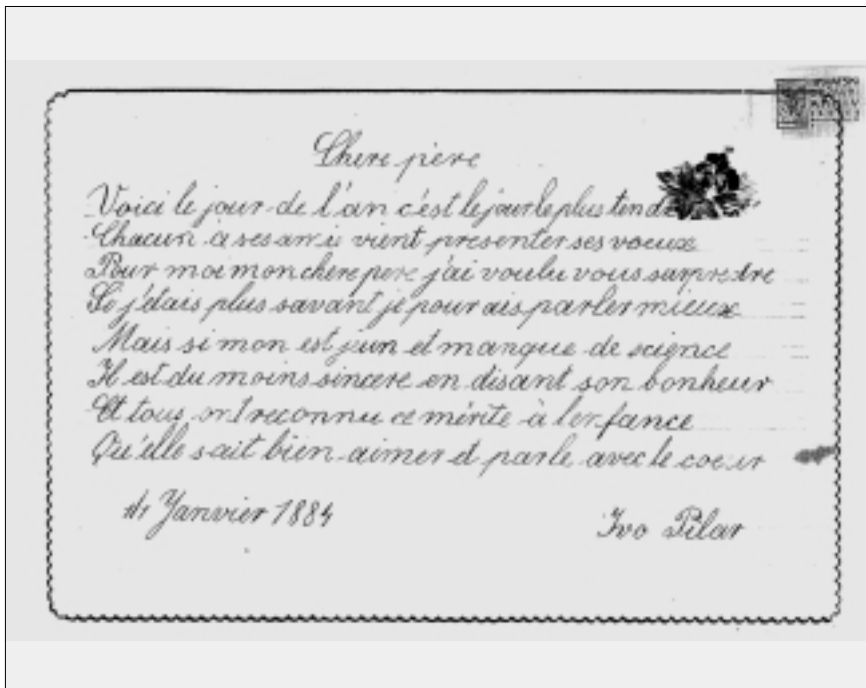 Chere père
Voici le jour de l'an c'est le jour le plus tend
Chacun a ses ami vient presenter ses voeux
Pour moi mon chere pere j'ai voulu vous surpredre
Si j'étais plus savant je pourais parler mieux
Mais si mon est jun et manque de science
Il est du moins sincere en disant son bonheur
Et tous ont reconnu ce mérite à l'enfance
Qu'elle sait bien aimer et parle avec le coeur
Janvier 1884
Ivo Pilar